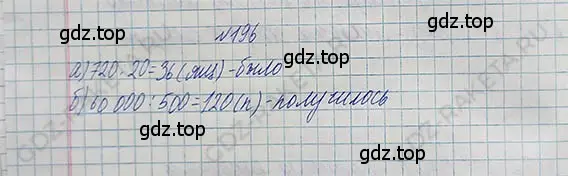 gdz.top
№196
gdz.top
а) 720 : 20 = 36 (ящ) - было
б) 60 000 : 500 = 120 (п) - получилось
gdz.top
gdz.top
GDZ-RAKETA.RU